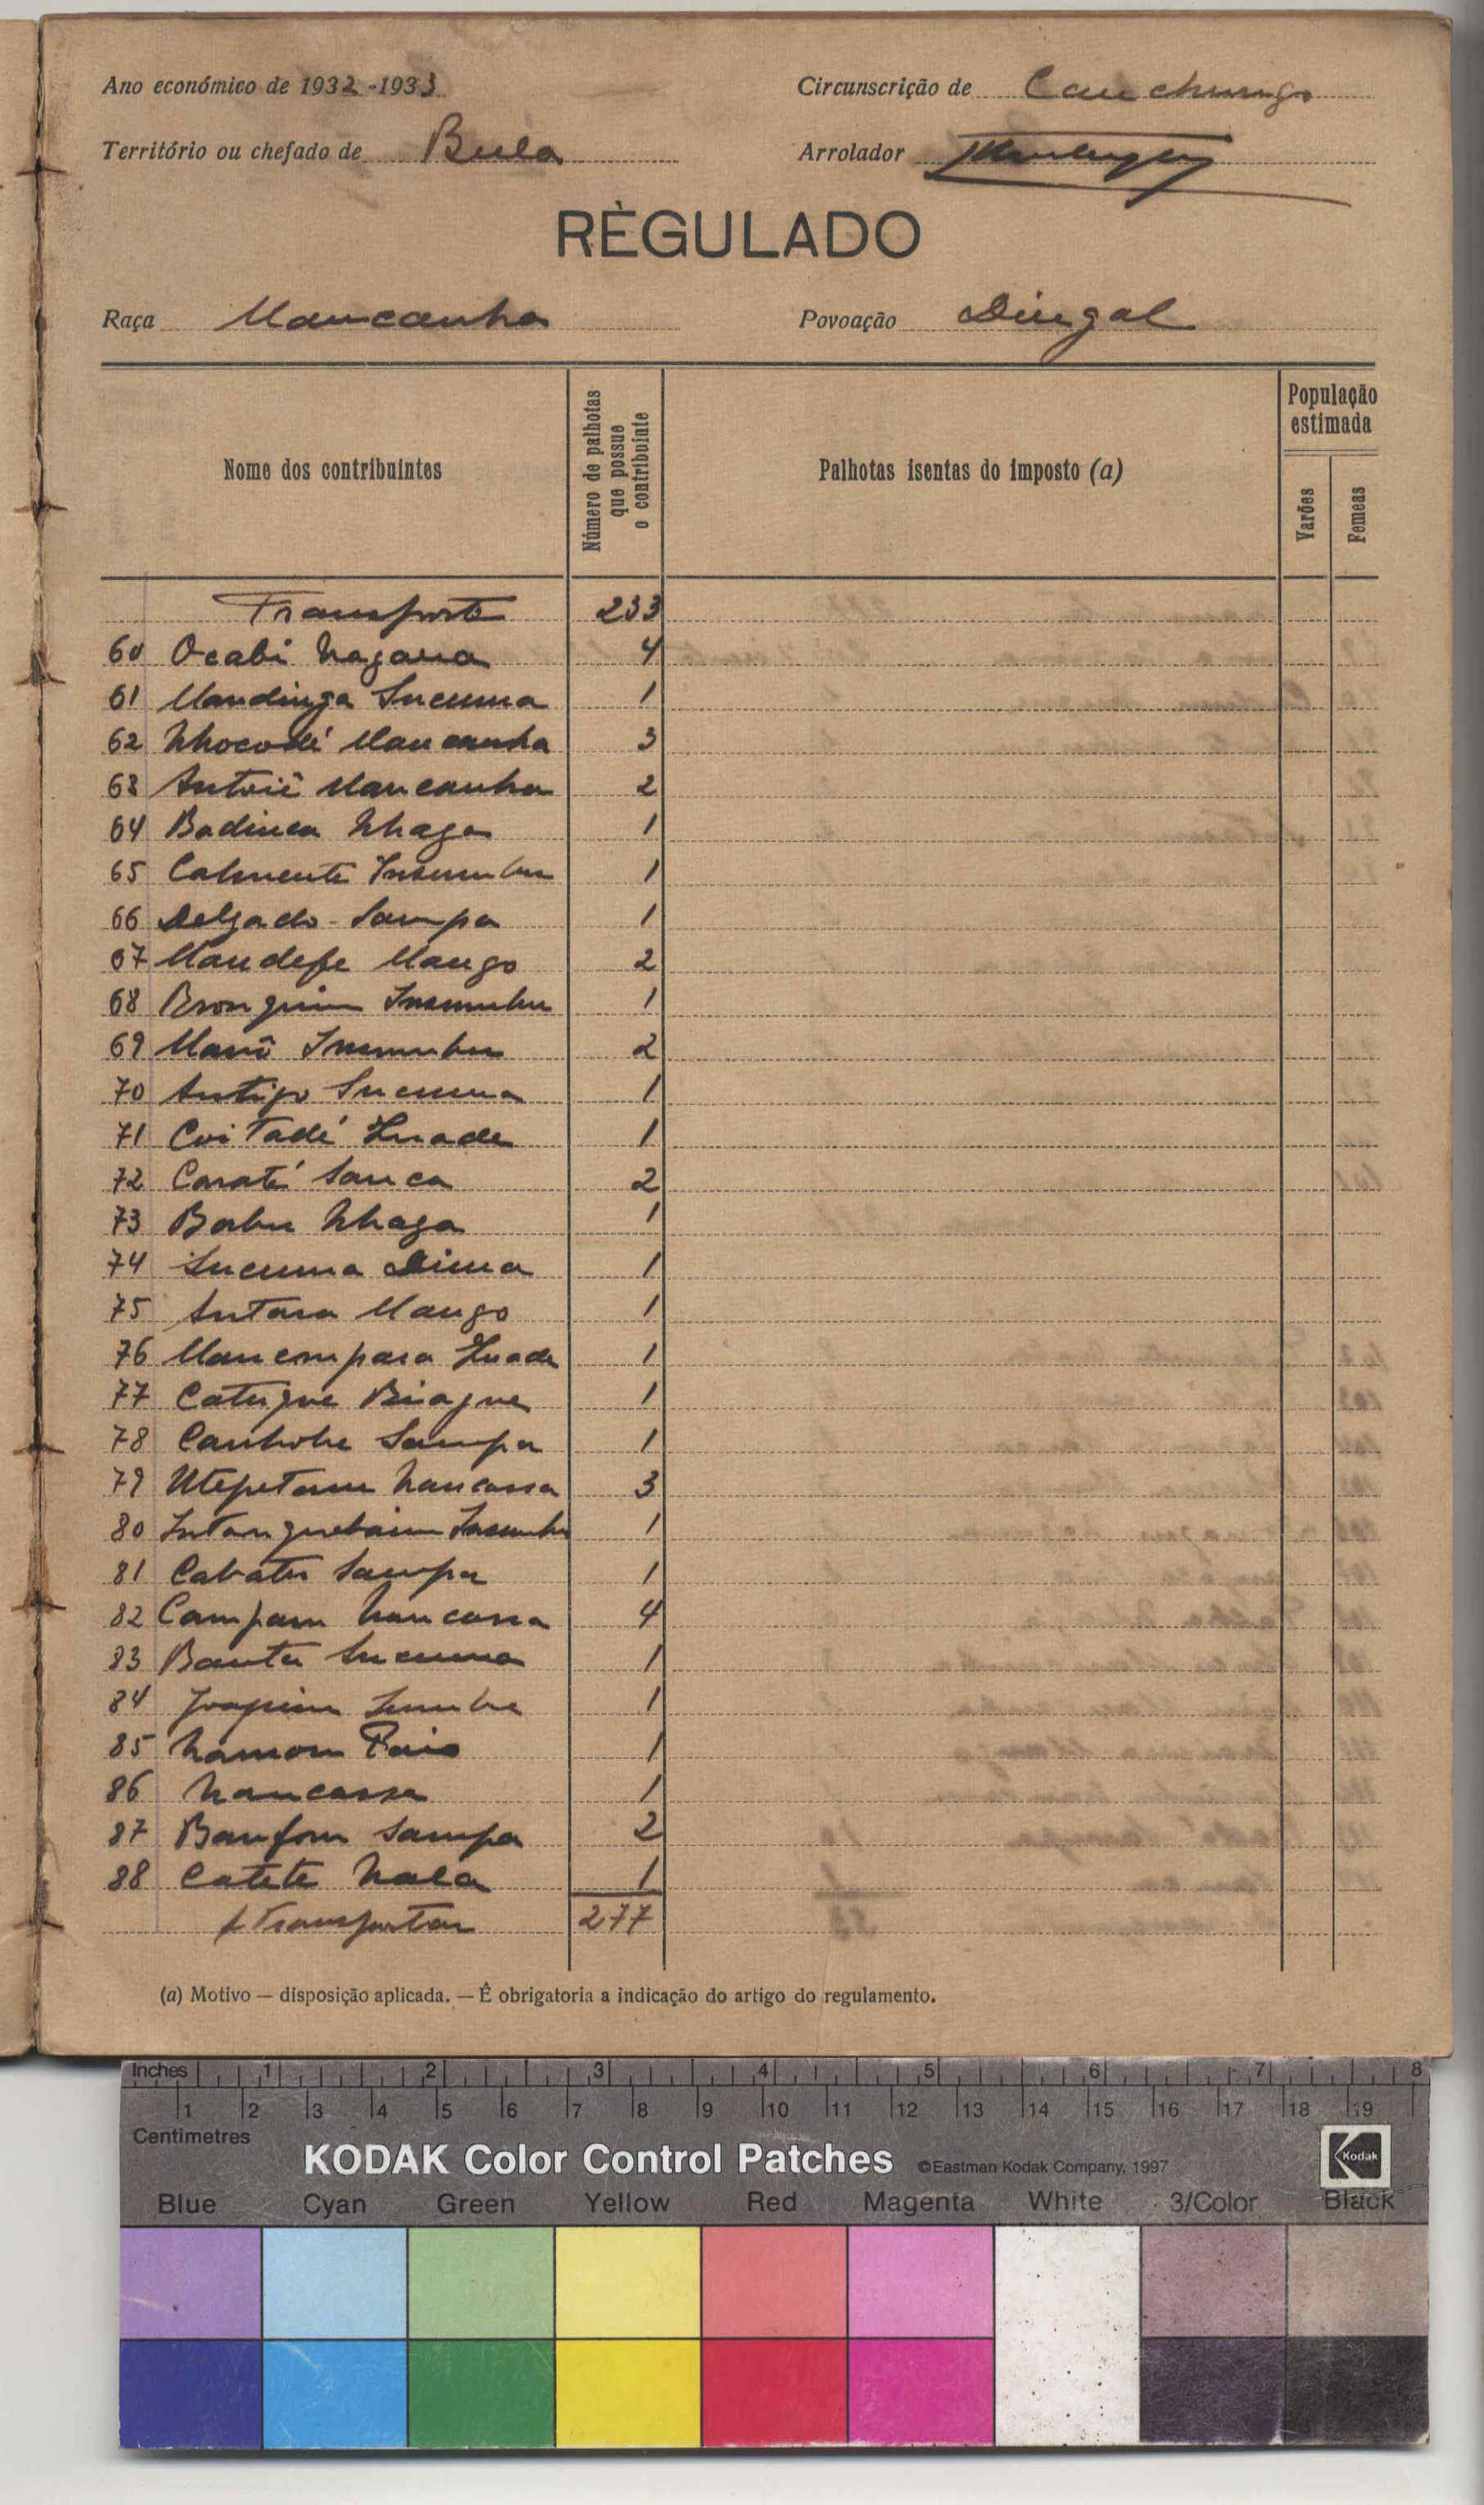 Ano económico de 1932-1933
Circunscrição de Canchungo
Território ou chefado de Bula
Arrolador
RÈGULADO
Raça Mancanha
Povoação Dingal
Nome dos contribuintes
Número de palhotas que possue o contribuinte
Palhotas isentas do imposto (a)
População estimada
Varões
Femeas
Transporte 233
60 Ocabi Nagana 4
61 Mandinga Sucuma 1
62 Nhocodé Mancanha 3
63 Antoiê Mancanha 2
64 Badinca Nhaga 1
65 Calmente Insumbu 1
66 Delgado Sampa 1
67 Mandefe Mango 2
68 Bronquim Insumbu 1
69 Manô Insumbu 2
70 Antigo Sucuma 1
71 Coitadé Inade 1
72 Caraté Sanca 2
73 Babu Nhaga 1
74 Sucuma Dima 1
75 Antara Mango 1
76 Mancompara Inade 1
77 Catugue Biague 1
78 Canhobe Sampa 1
79 Utepetam Nancassa 3
80 Insumbu 1
81 Cabatu Sampa 1
82 Campam Nancassa 4
83 Bantu Sucuma 1
84 Joaquim Sumbe 1
85 Namom Pais 1
86 Nancassa 1
87 Banfom Sampa 2
88 Catete Nala 1
A Transportar 277
(a) Motivo — disposição aplicada. — Ê obrigatoria a indicação do artigo do regulamento.
Inches 1 2 3 4 5 6 7 8
1 2 3 4 5 6 7 8 9 10 11 12 13 14 15 16 17 18 19
Centimetres
KODAK Color Control Patches ©Eastman Kodak Company, 1997 Kodak
Blue Cyan Green Yellow Red Magenta White 3/Color Black